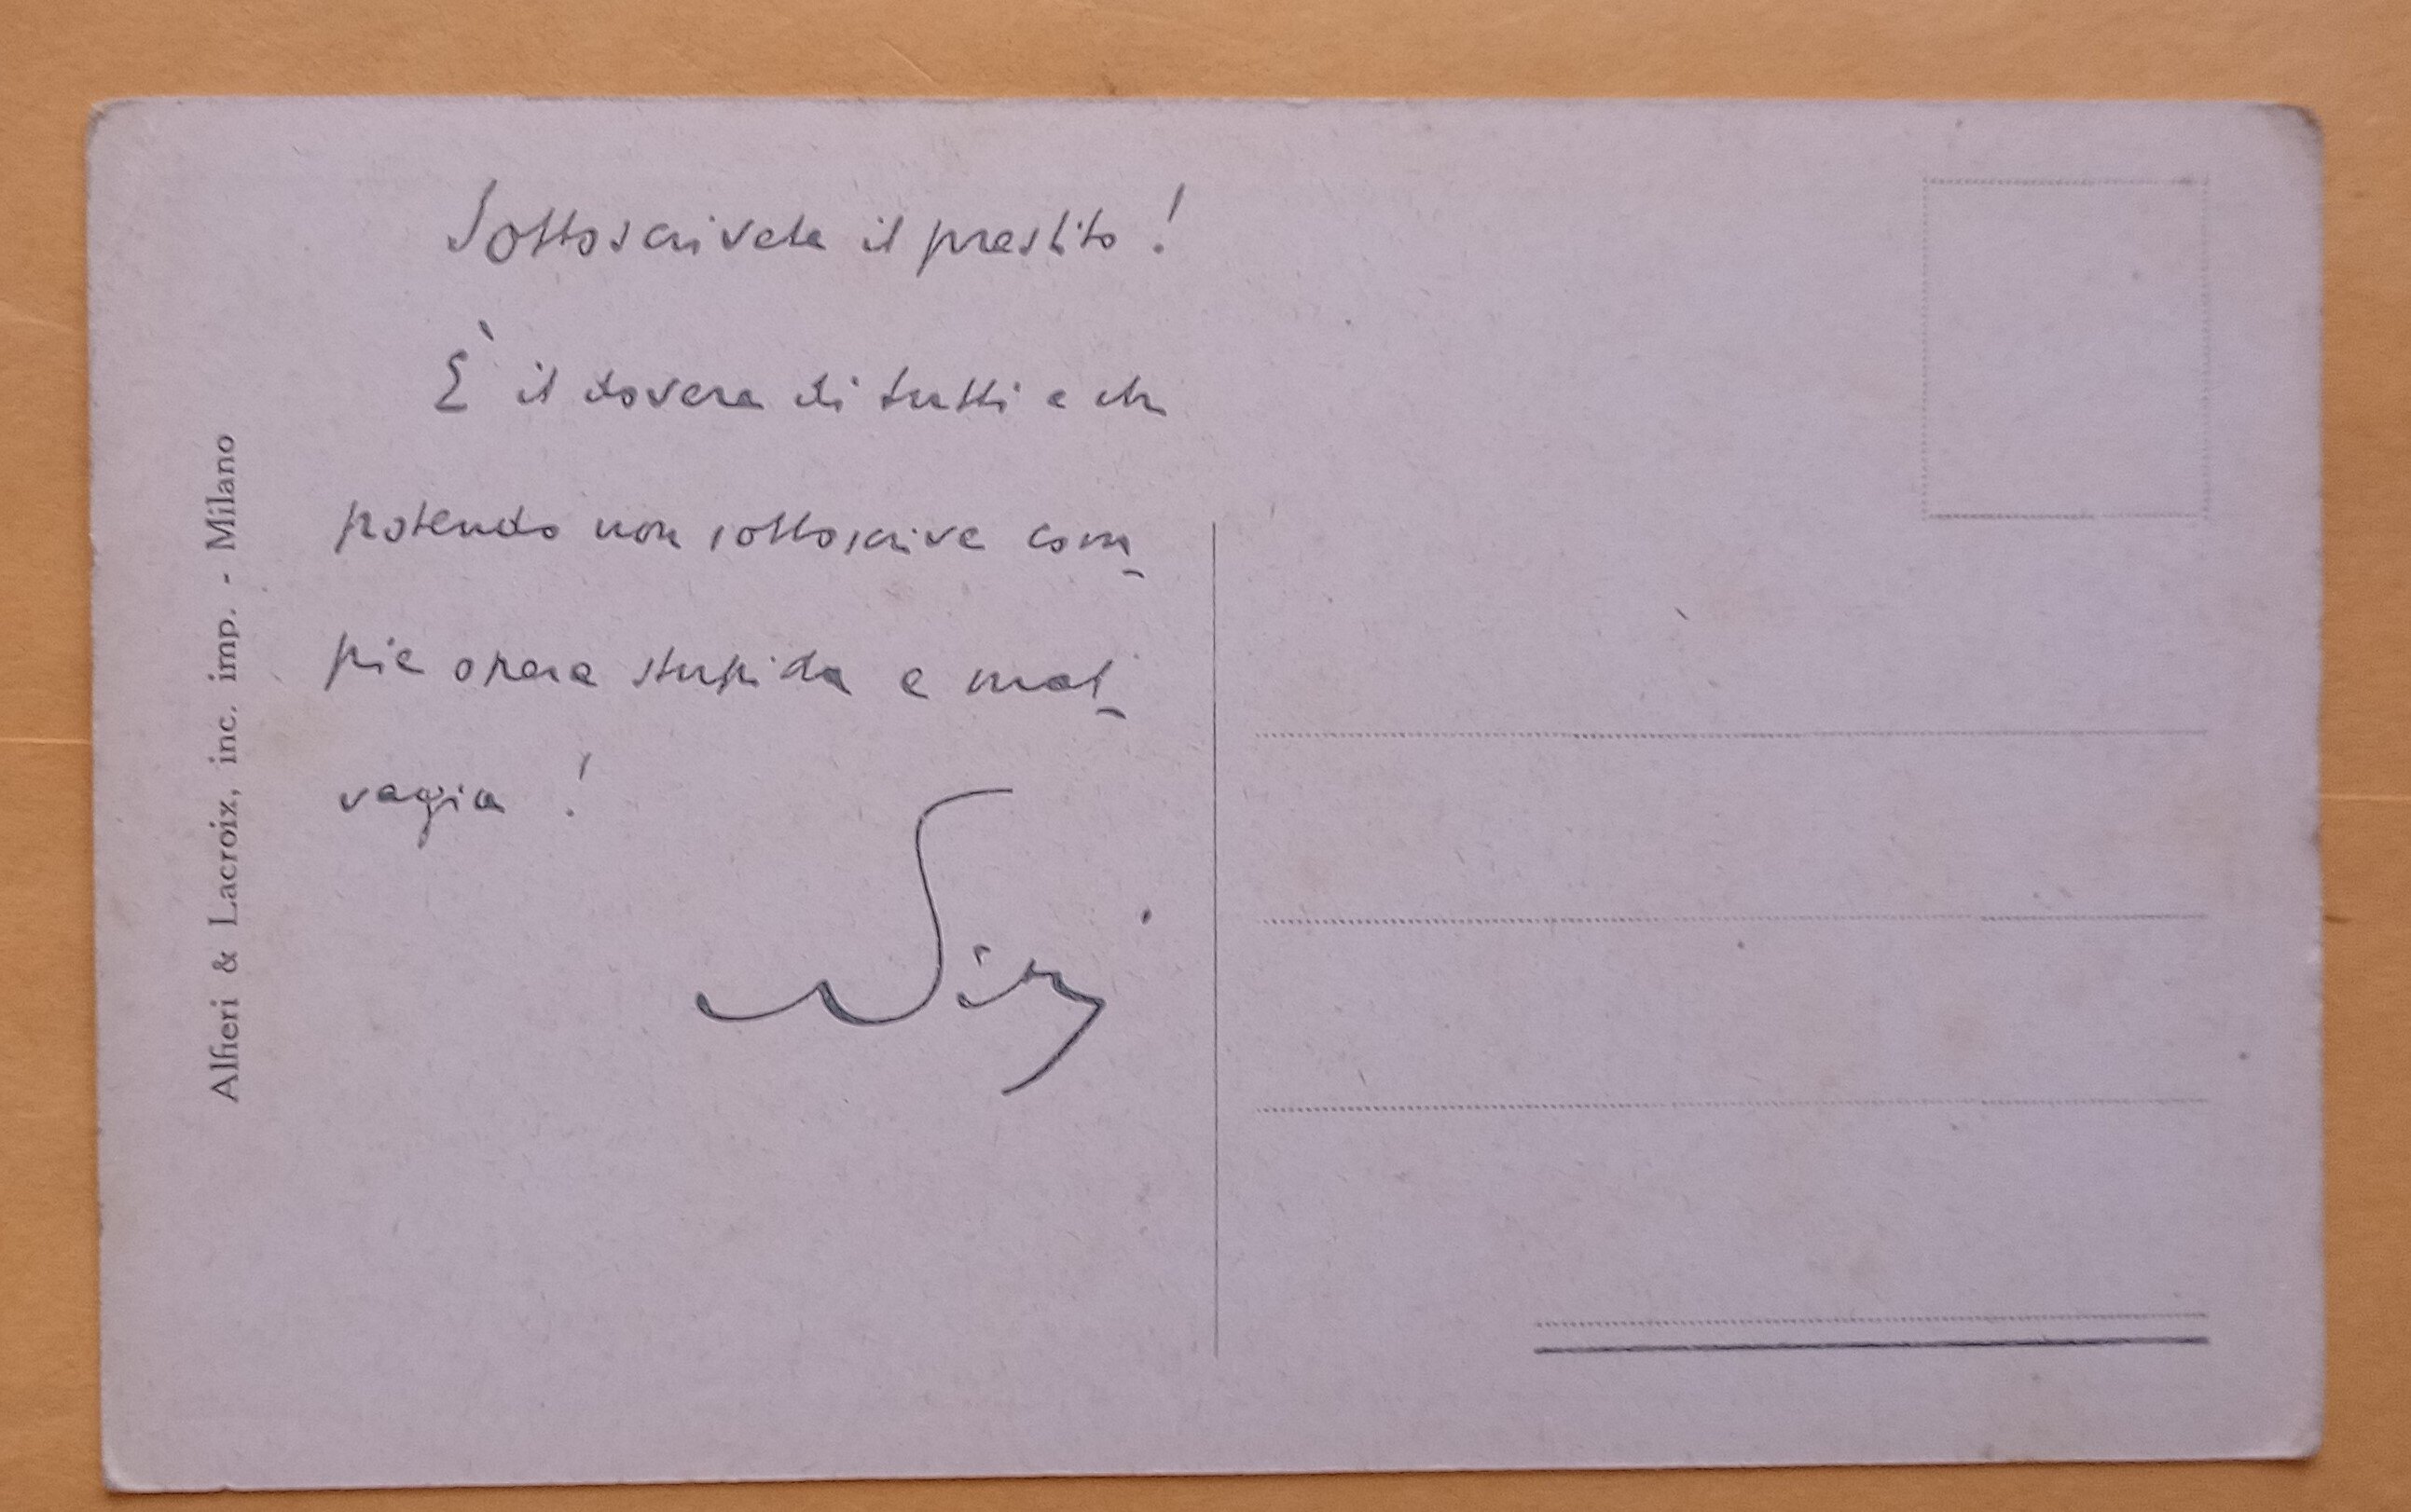 Sottoscrivete il prestito!
È il dovere di tutti e chi
potendo non sottoscrive com-
pie opera stupida e mal-
vagia!
Alfieri & Lacroix, inc. imp. - Milano